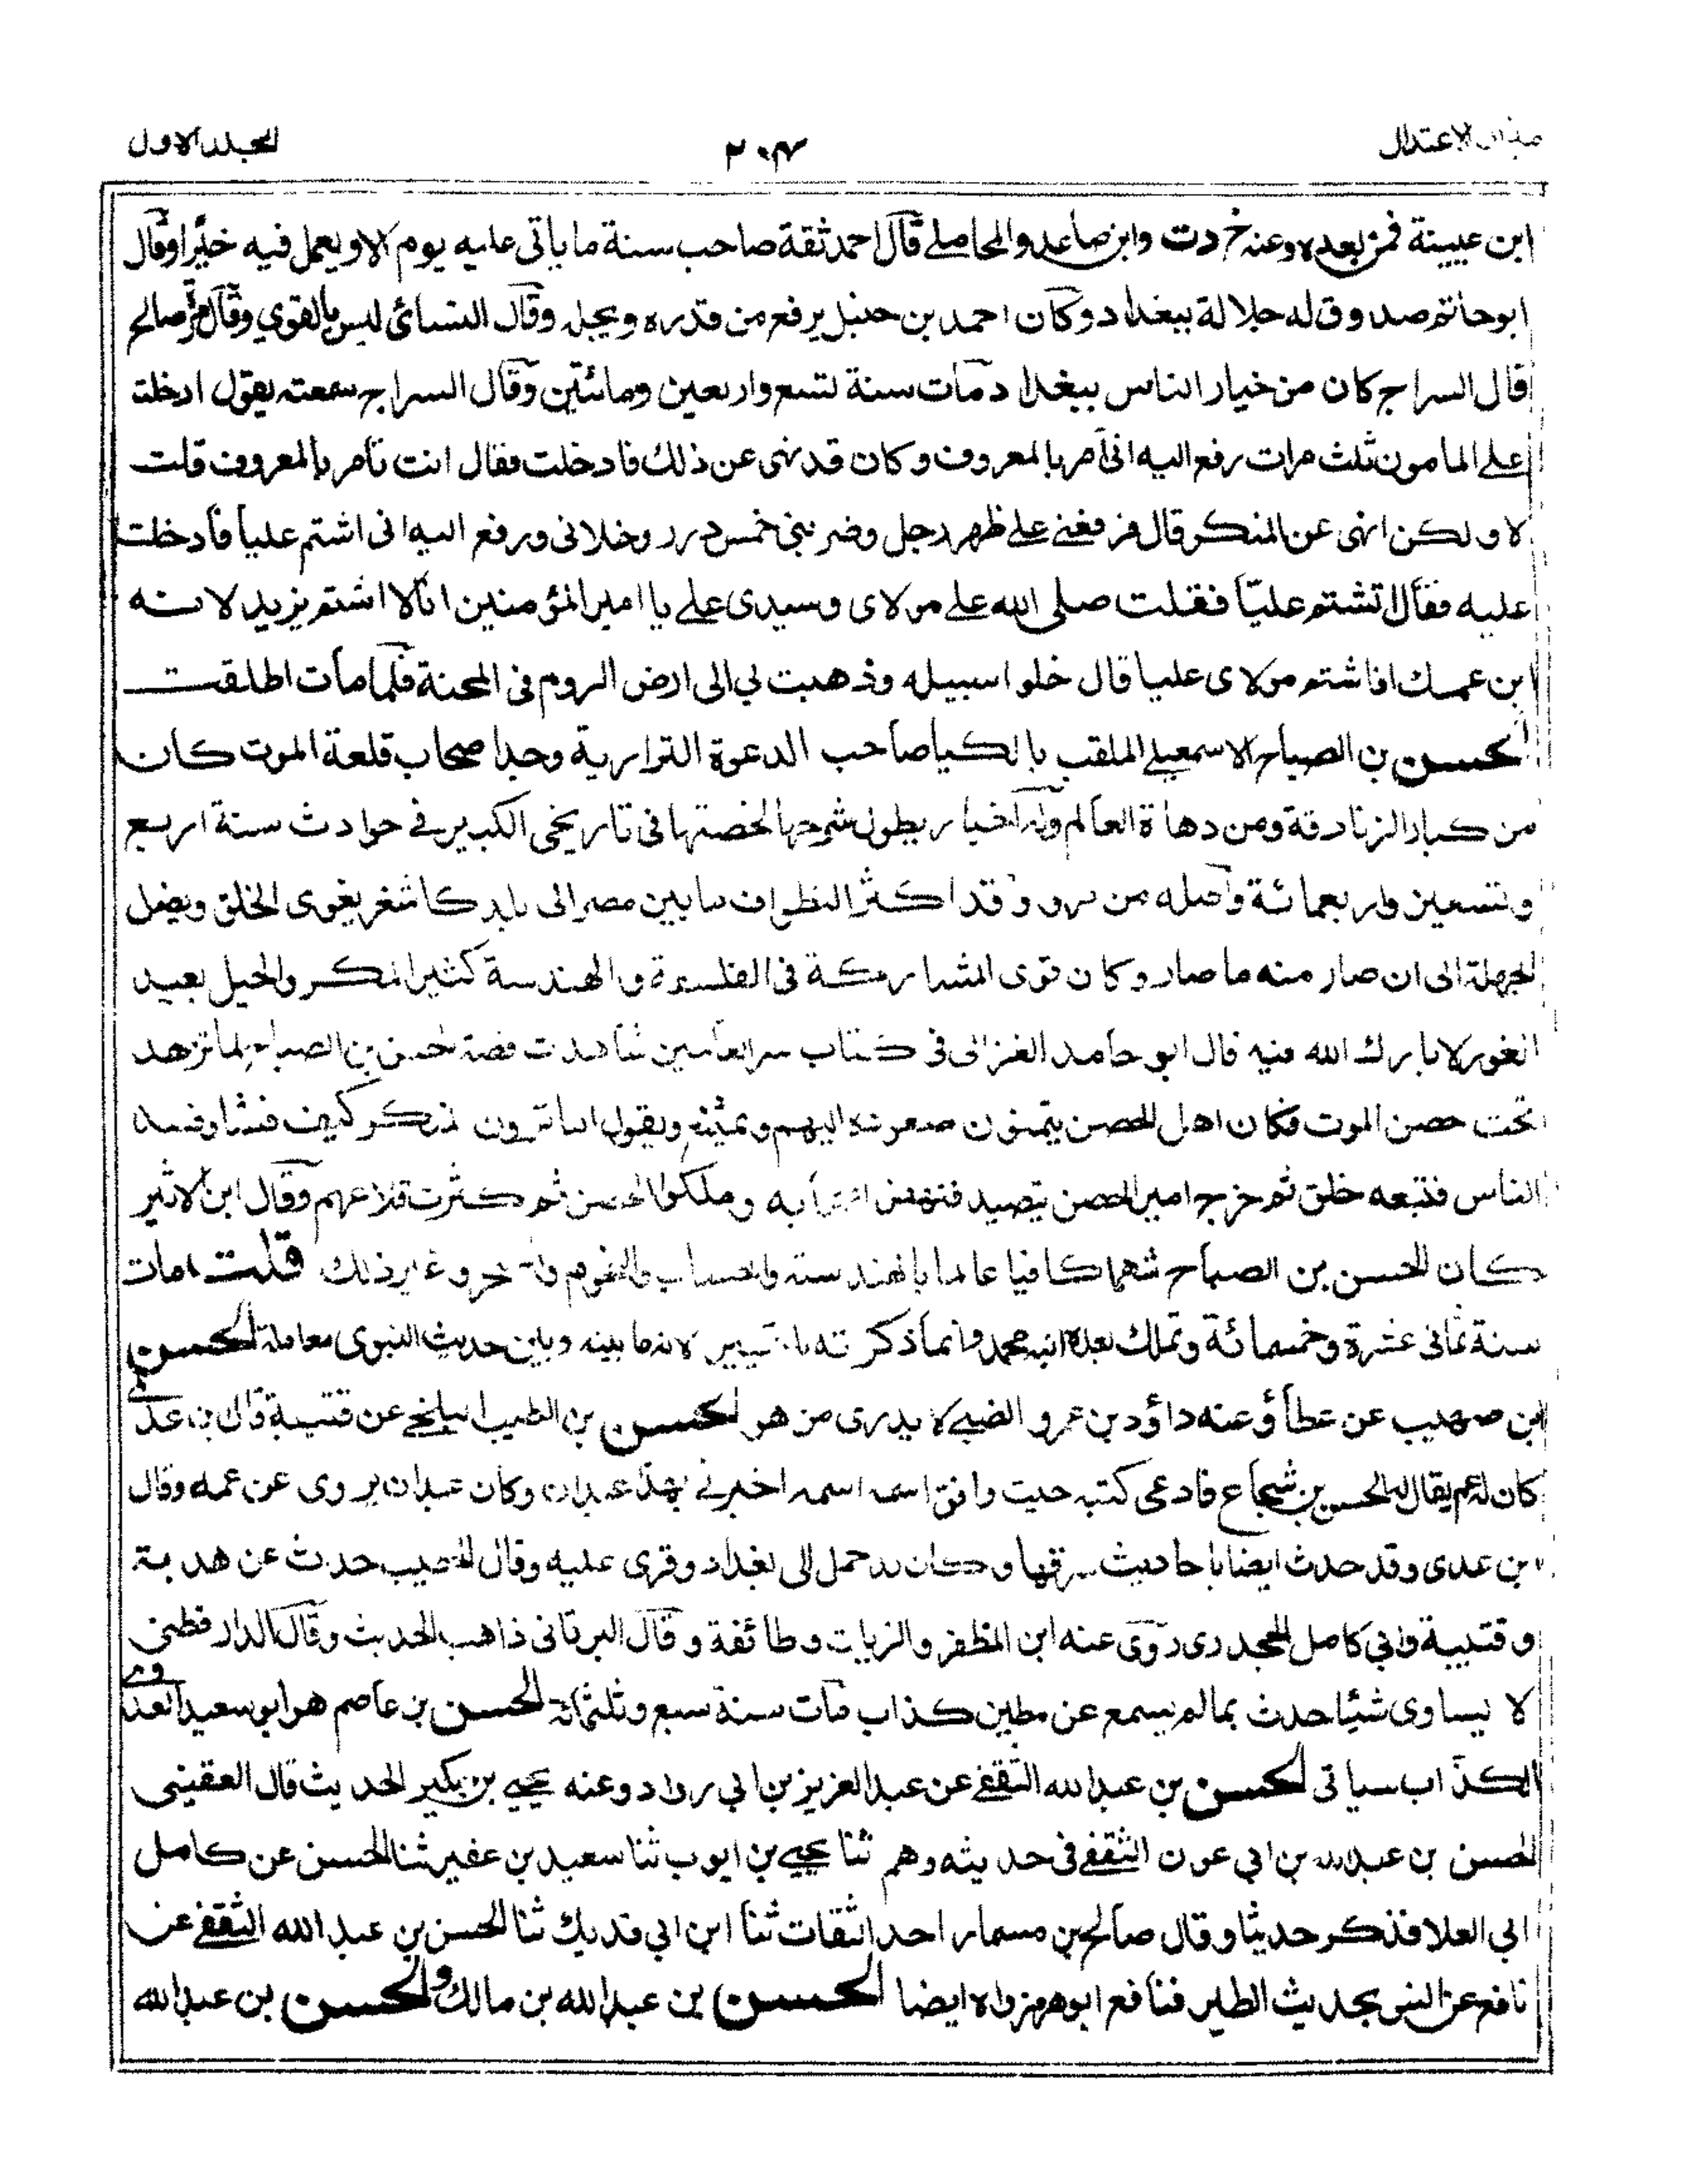 ميزان الاعتدال ٢٠٧ المجلد الاول
ابن عيينة فمن بعده وعنه خ د ت وابن صاعد والمحاملے قال احمد ثقة صاحب سنة ما ياتى عليه يوم الا ويعمل فيه خيرا وقال
ابو حاتم صدوق له جلالة ببغداد وكان احمد بن حنبل يرفع من قدره ويجله وقال النسائى ليس بالقوي وقال مرة صالح
قال السراج كان من خيار الناس ببغداد مات سنة تسع واربعين ومائتين وقال السراج سمعته يقول ادخلت
علے المامون ثلث مرات رفع اليه انى آمر بالمعروف وكان قد نهى عن ذلك فادخلت فقال انت تأمر بالمعروف قلت
لا ولكن انهى عن المنكر قال فرفعنے علے ظهر رجل وضربنى خمس درر وخلانى ورفع اليه انى اشتم عليا فأدخلت
عليه فقال تشتم عليّا فقلت صلى الله علے مولاى وسيدى علے يا امير المؤمنين انا لا اشتم يزيد لانه
ابن عمك افاشتم مولاى عليا قال خلوا سبيله وذهبت لي الى ارض الروم فى المحنة فلما مات اطلقت
الحسن بن الصباح الاسمعيلے الملقب بالكيا صاحب الدعوة النزارية وجد اصحاب قلعة الموت كان
من كبار الزنادقة ومن دهاة العالم وله اخبار يطول شرحها لخصتها فى تاريخى الكبير فے حوادث سنة اربع
وتسعين واربعمائة واصله من مرو وقد اكثر التطواف ما بين مصر الى بلد كاشغر يغوى الخلق ويضل
الجهلة الى ان صار منه ما صار وكان قوى المشاركة فى الفلسفة والهندسة كثير المكر والحيل بعيد
الغور لا بارك الله فيه قال ابو حامد الغزالى فى كتاب سر العالمين شاهدت قصة الحسن بن الصباح لما تزهد
تحت حصن الموت فكان اهل الحصن يتمنون صعوده اليهم ويمتنع ويقول اما ترون المنكر كيف فشا وفسد
الناس فتبعه خلق ثم خرج امير الحصن يتصيد فنهض اصحابه وملكوا الحصن ثم كثرت قلاعهم وقال ابن الاثير
كان الحسن بن الصباح شهما كافيا عالما بالهندسة والحساب والنجوم والسحر وغير ذلك قلت مات
سنة ثمانى عشرة وخمسمائة وتملك بعده ابنه محمد وانما ذكرته للتمييز لانه ما بينه وبين حديث النبوى معاملة الحسن
ابن صهيب عن عطأ وعنه داؤد بن عمرو الضبے لا يدرى من هو الحسن بن الطيب البلخے عن قتيبة قال ابن عدى
كان له عم يقال له الحسن بن شجاع فادعى كتبه حيث وافق اسمه اسمه اخبرنے بهذا عبدان وكان عبدان يروى عن عمه وقال
ابن عدى وقد حدث ايضا باحاديث سرقها وكان قد حمل الى بغداد وقرى عليه وقال الخطيب حدث عن هدبة
وقتيبة وابي كامل الجحدرى روى عنه ابن المظفر والزيات وطائفة وقال البرقانى ذاهب الحديث وقال الدارقطنى
لا يساوى شيئا حدث بما لم يسمع عن مطين كذاب مات سنة سبع وثلثمائة الحسن بن عاصم هو ابو سعيد العدوے
الكذّاب سياتى الحسن بن عبد الله الثقفے عن عبد العزيز بن ابي رواد وعنه يحيے بن بكير الحديث قال العقيلى
الحسن بن عبد الله بن ابي عون الثقفے فى حديثه وهم ثنا يحيے بن ايوب ثنا سعيد بن عفير ثنا الحسن عن كامل
ابي العلا فذكر حديثا وقال صالح بن مسمار احد الثقات ثنا ابن ابي فديك ثنا الحسن بن عبد الله الثقفے عن
نافع عن انس بحديث الطير فنافع ابو هرمز واه ايضا الحسن بن عبد الله بن مالك والحسن بن عبد الله